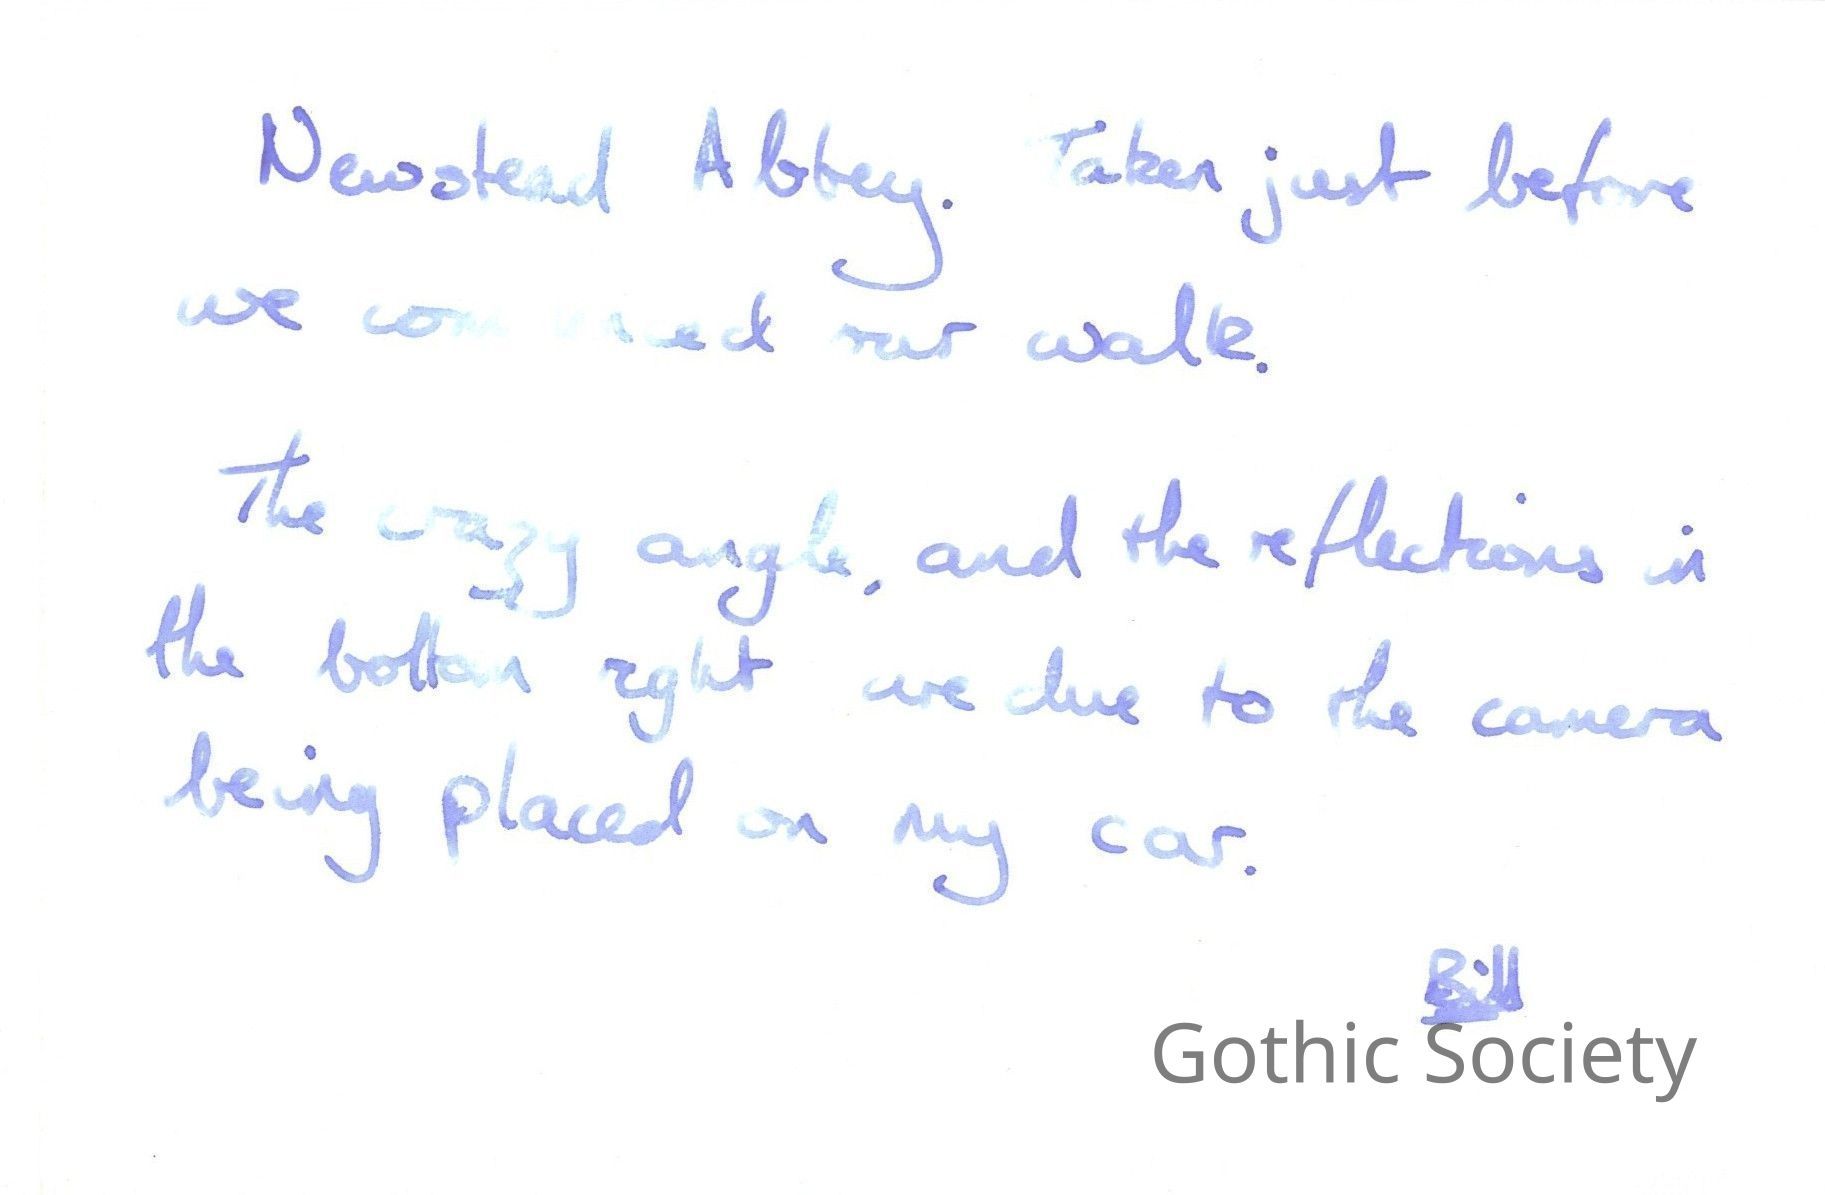 Newstead Abbey. Taken just before
we our walk.
The crazy angle, and the reflections in
the bottom right are due to the camera
being placed on my car.
Bill
Gothic Society